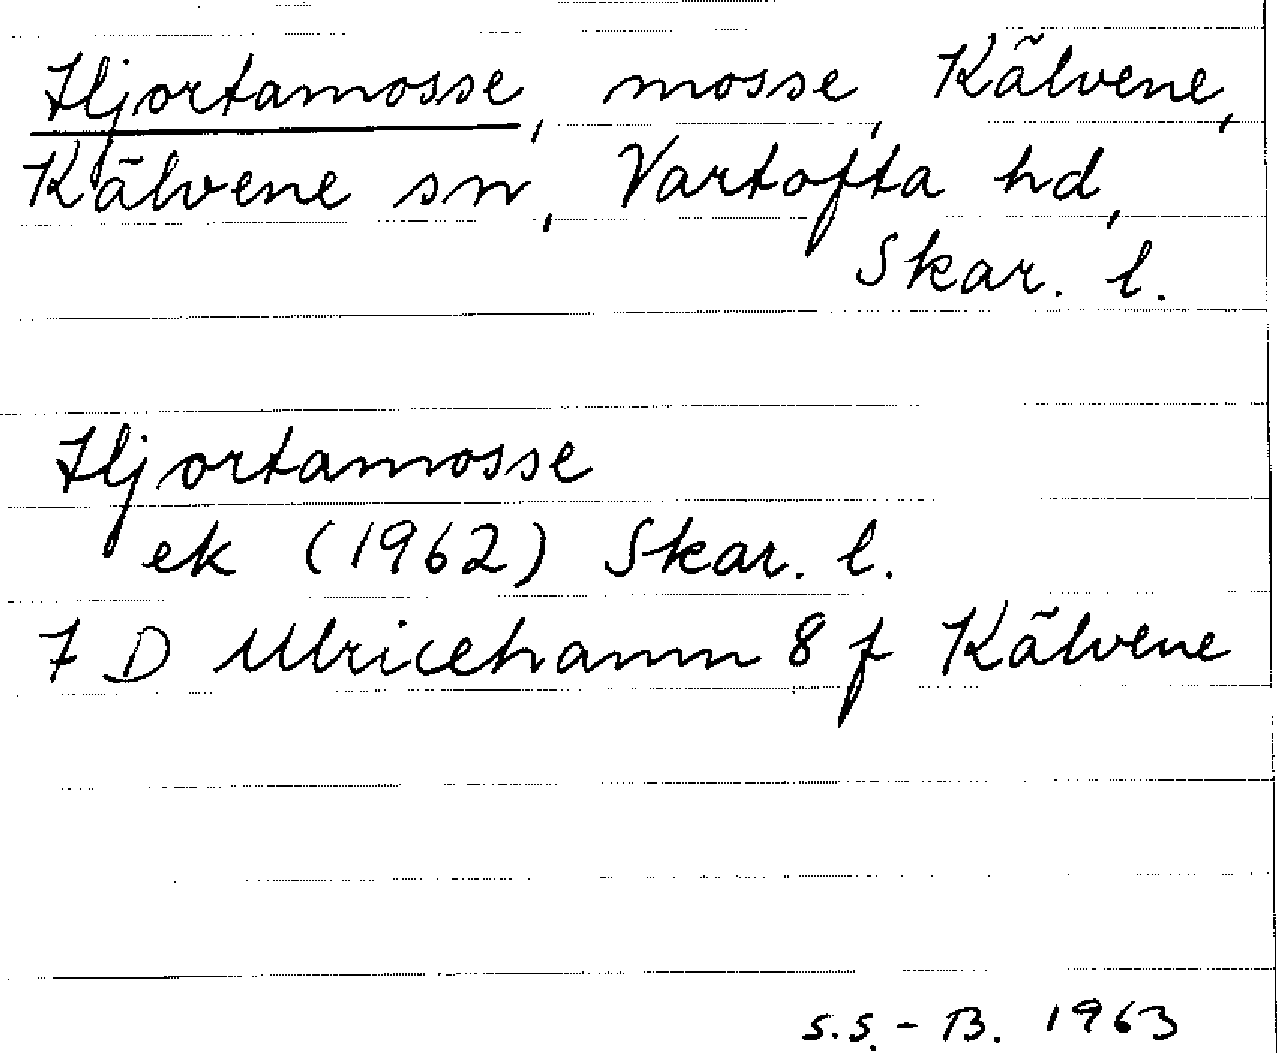 Hjortamosse, mosse, Kälvene,
Kälvene sn, Vartofta hd,
Skar. l.
Hjortamosse
ek (1962) Skar. l.
7 D Ulricehamn 8 f Kälvene
S.S.-B. 1963